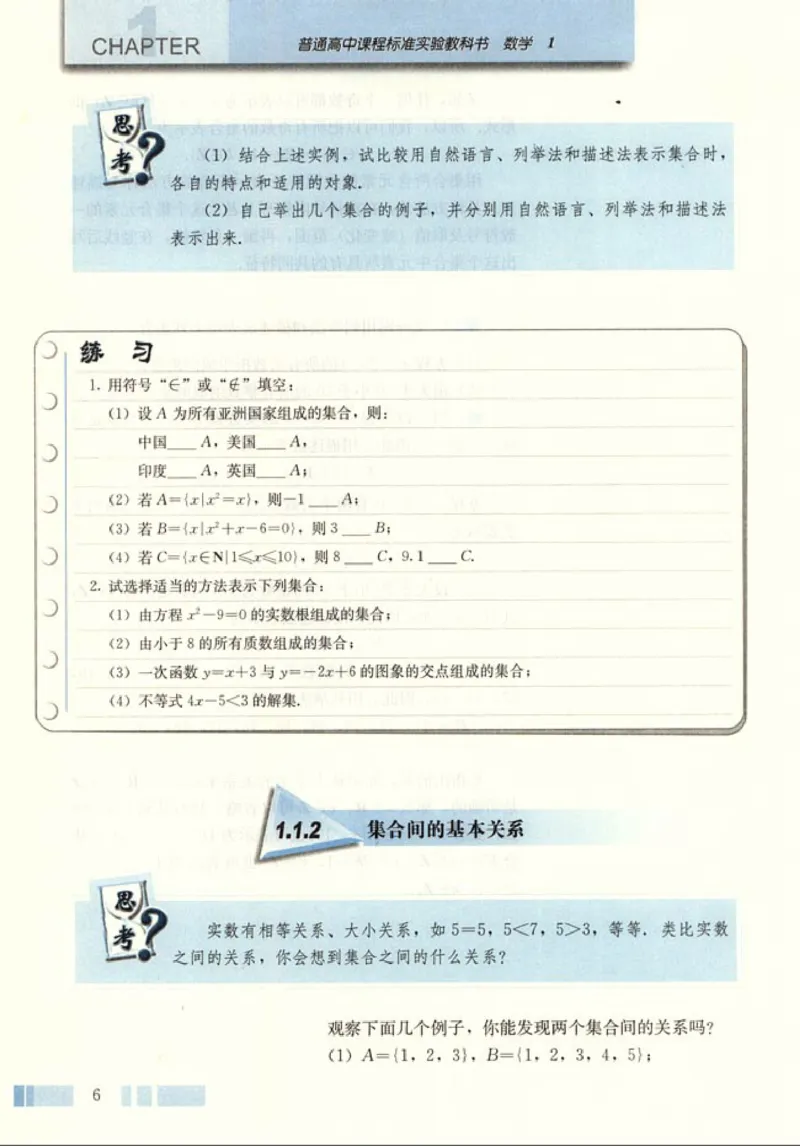 CHAPTER 1
普通高中课程标准实验教科书 数学 1
思考?
(1) 结合上述实例，试比较用自然语言、列举法和描述法表示集合时，
各自的特点和适用的对象.
(2) 自己举出几个集合的例子，并分别用自然语言、列举法和描述法
表示出来.
练 习
1. 用符号“∈”或“∉”填空：
(1) 设 A 为所有亚洲国家组成的集合，则：
中国___ A，美国___ A，
印度___ A，英国___ A；
(2) 若 A={x|x²=x}，则-1 ___ A；
(3) 若 B={x|x²+x-6=0}，则 3 ___ B；
(4) 若 C={x∈N|1⩽x⩽10}，则 8 ___ C，9.1 ___ C.
2. 试选择适当的方法表示下列集合：
(1) 由方程 x²-9=0 的实数根组成的集合；
(2) 由小于 8 的所有质数组成的集合；
(3) 一次函数 y=x+3 与 y=-2x+6 的图象的交点组成的集合；
(4) 不等式 4x-5<3 的解集.
1.1.2 集合间的基本关系
思考?
实数有相等关系、大小关系，如 5=5，5<7，5>3，等等. 类比实数
之间的关系，你会想到集合之间的什么关系？
观察下面几个例子，你能发现两个集合间的关系吗？
(1) A={1，2，3}，B={1，2，3，4，5}；
6